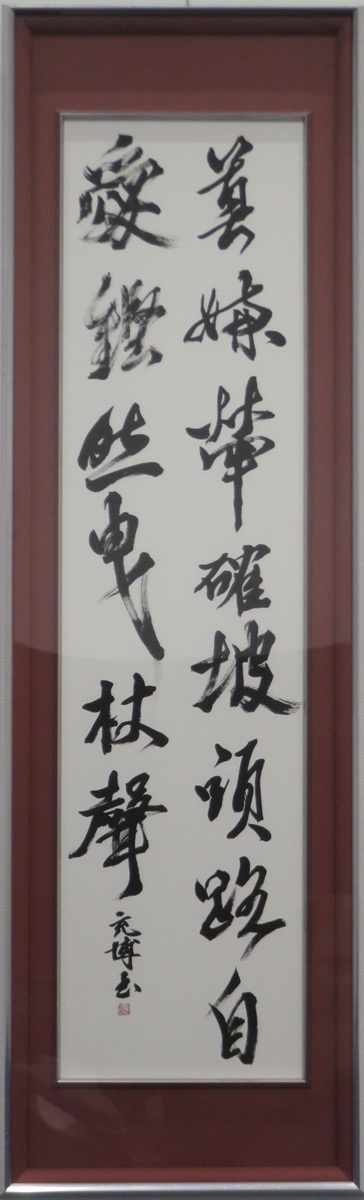 莫嫌犖确坡頭路自
愛鏗然曳杖聲
元博書